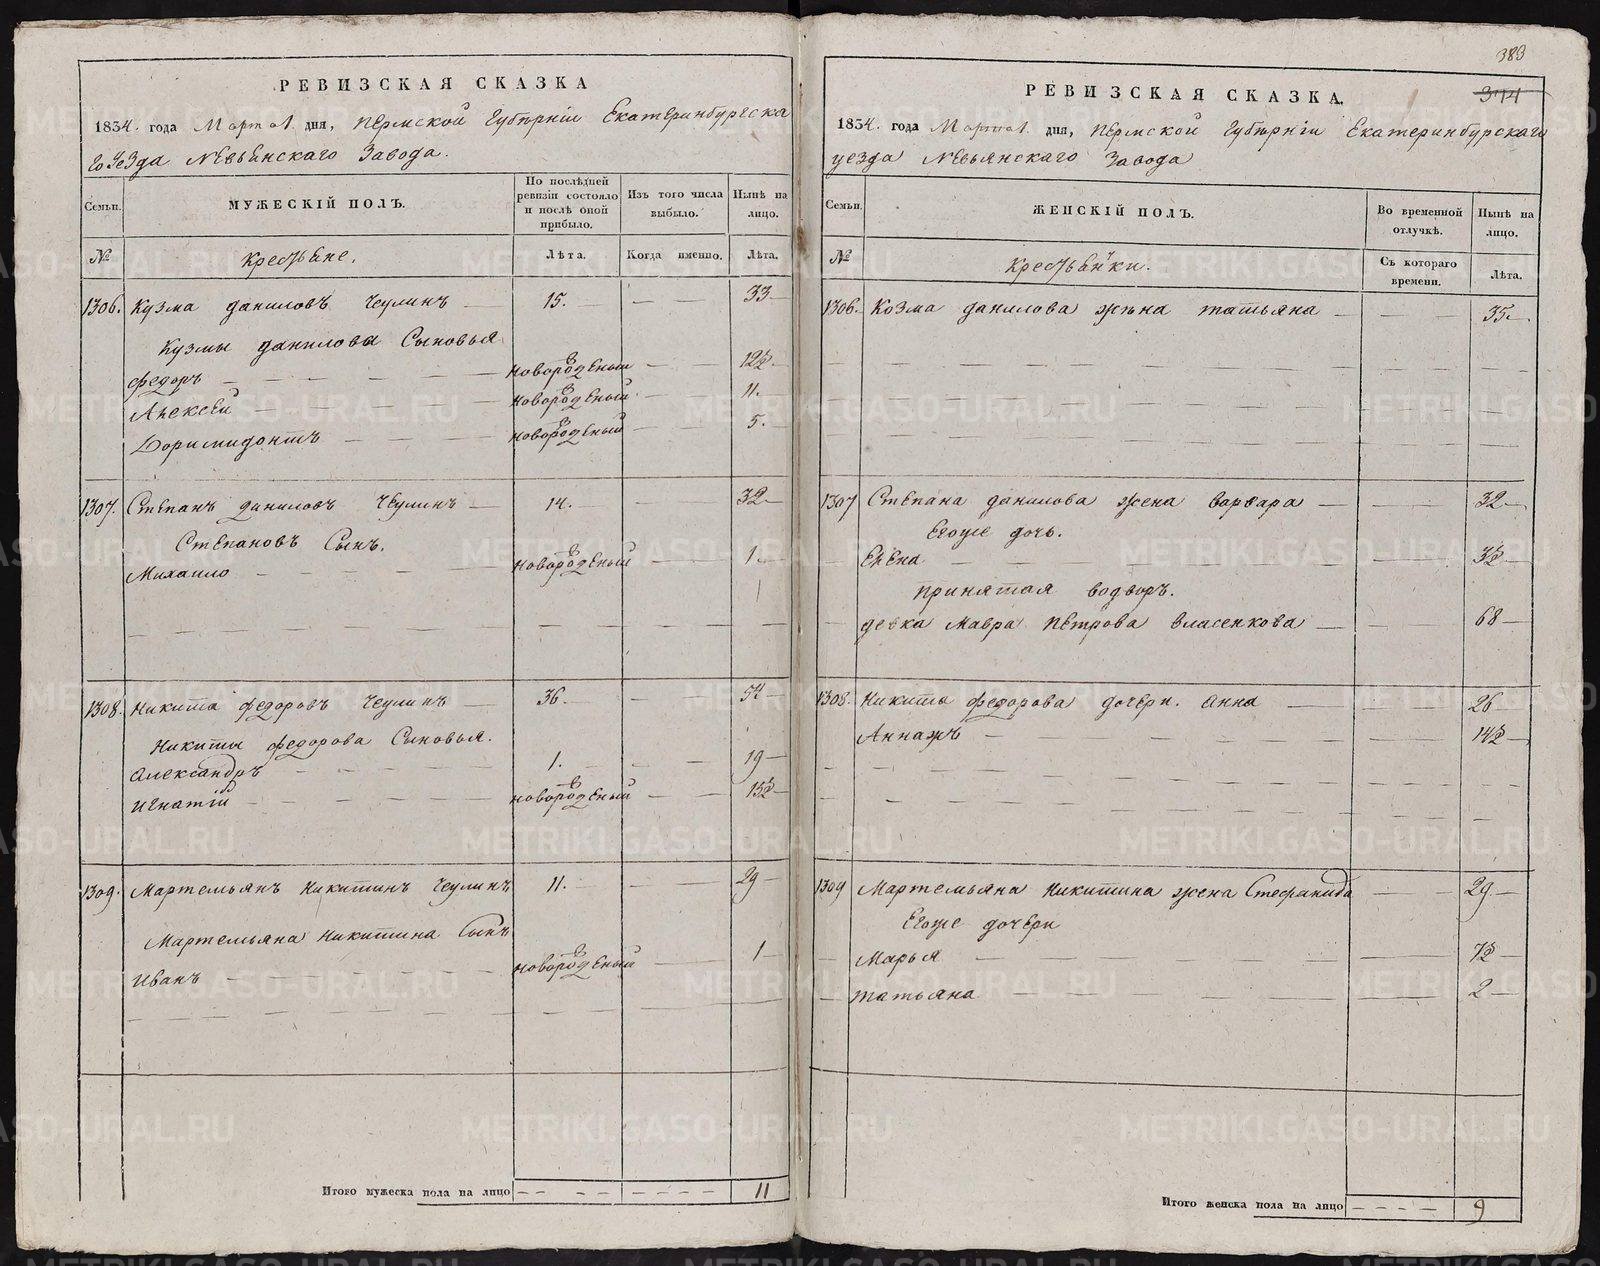 РЕВИЗСКАЯ СКАЗКА
1834. года Марта 1. дня, Пермской Губѣрнiи Екатеринбургска
го Уезда Невьянскаго Завода.
Семьи. МУЖЕСКIЙ ПОЛЪ. По послѣдней ревизiи состояло и послѣ оной прибыло. Изъ того числа выбыло. Нынѣ на лицо.
№ Крестьяне. Лѣта. Когда именно. Лѣта.
1306. Кузма Даниловъ Чеулинъ 15. 33
Кузмы Данилова Сыновья
Федоръ новорожденый 12½
Алексей новорожденый 11.
Доримидонтъ новорожденый 5.
1307. Степанъ Даниловъ Чеулинъ 14. 32
Степановъ Сынъ.
Михаило новорожденый 1.
1308. Никита Федоровъ Чеулинъ 36. 54
Никиты Федорова Сыновья.
Александръ 1. 19
Игнатiй новорожденый 15½
1309. Мартемьянъ Никитинъ Чеулинъ 11. 29
Мартемьяна Никитина Сынъ
Иванъ новорожденый 1
Итого мужеска пола на лицо 11
383
374
РЕВИЗСКАЯ СКАЗКА.
1834. года Марта 1. дня, Пермской Губѣрнiи Екатеринбурскаго
уезда Невьянскаго Завода
Семьи. ЖЕНСКIЙ ПОЛЪ. Во временной отлучкѣ. Нынѣ на лицо.
№ Крестьянки. Съ котораго времени. Лѣта.
1306. Козма Данилова жѣна Татьяна 35.
1307 Степана Данилова жена Варвара 32
Егоже дочь.
Елена 3½
Принятая водворъ.
девка Мавра Петрова Власенкова 68
1308. Никиты Федорова дочери. Анна 26
Аннажъ 14½
1309 Мартемьяна Никитина жена Стефанида 29
Егоже дочери
Марья 7½
Татьяна 2
Итого женска пола на лицо 9
METRIKI.GASO-URAL.RU